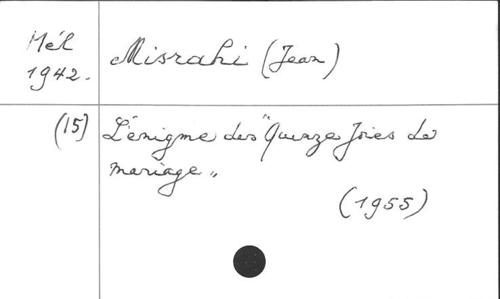 Mél
1942.
Misrahi (Jean)
(15)
L'énigme des "Quinze Joies de
mariage"
(1955)